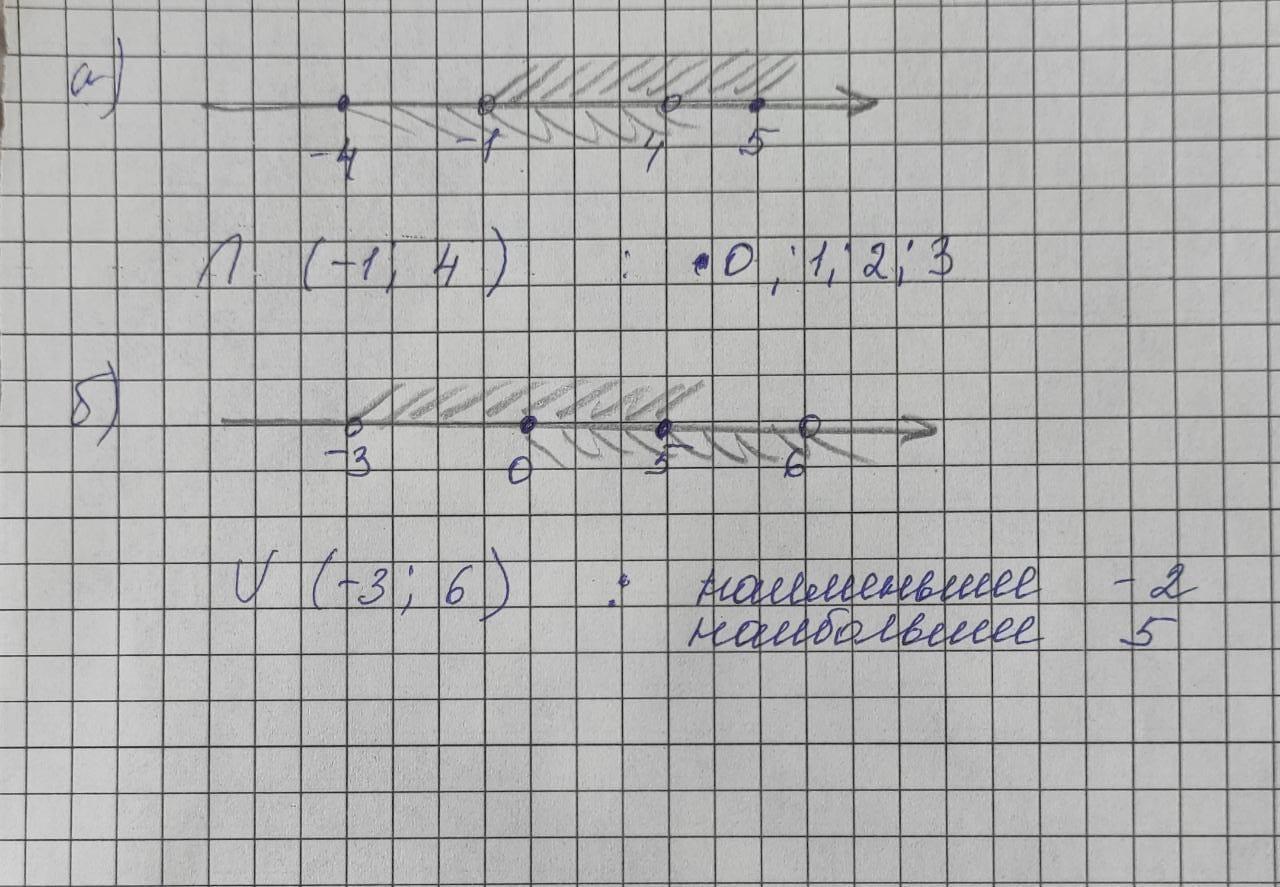 а)
-4 -1 4 5
∩ (-1; 4) : 0; 1; 2; 3
б)
-3 0 5 6
∪ (-3; 6) : наименьшее -2
наибольшее 5